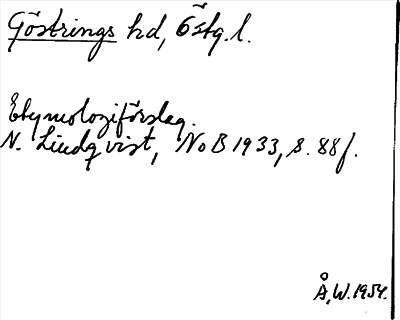 Göstrings hd, Östg. l.
Etymologiförslag.
N. Lindqvist, NoB 1933, s. 88f.
Å.W. 1954.